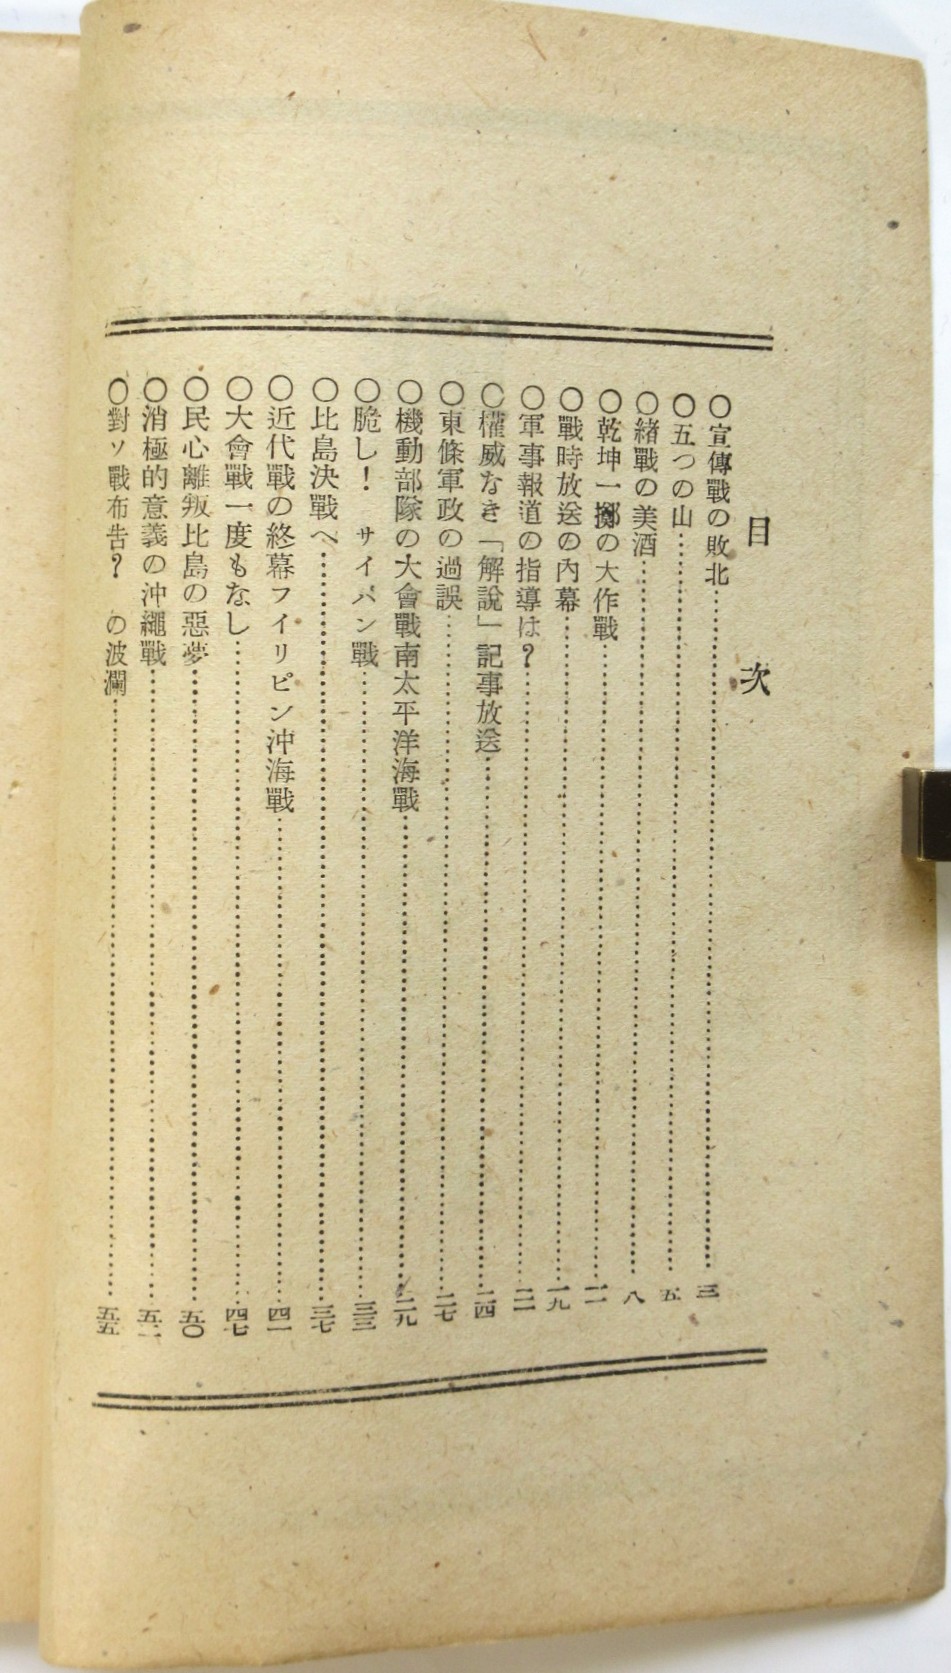 目次
〇宣傳戰の敗北……三
〇五つの山……五
〇緖戰の美酒……八
〇乾坤一擲の大作戰……一一
〇戰時放送の內幕……一九
〇軍事報道の指導は?……二一
〇權威なき「解說」記事放送……二四
〇東條軍政の過誤……二七
〇機動部隊の大會戰南太平洋海戰……二九
〇脆し! サイパン戰……三三
〇比島決戰へ……三七
〇近代戰の終幕フイリピン沖海戰……四一
〇大會戰一度もなし……四七
〇民心離叛比島の惡夢……五〇
〇消極的意義の沖繩戰……五二
〇對ソ戰布告? の波瀾……五五